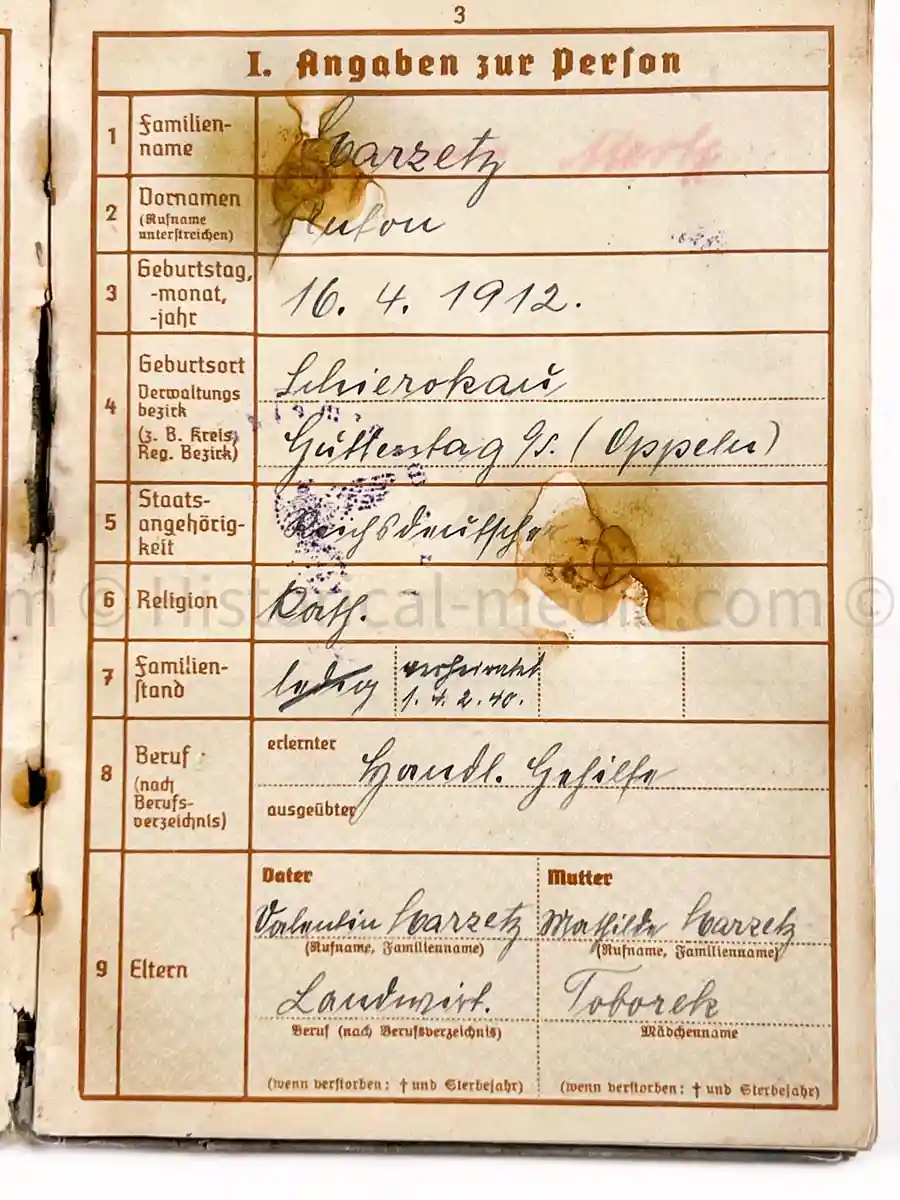 3
I. Angaben zur Person
1
Familien-
name
2
Vornamen
(Rufname
unterstreichen)
Anton
3
Geburtstag,
-monat,
-jahr
16. 4. 1912.
4
Geburtsort
Verwaltungs
bezirk
(z. B. Kreis,
Reg. Bezirk)
Schierokau
Guttentag O/S. (Oppeln)
5
Staats-
angehörig-
keit
Reichsdeutscher
6
Religion
Kath.
m © Historical-media.com ©
7
Familien-
stand
ledig
verheiratet
1. 4. 2. 40.
8
Beruf
(nach
Berufs-
verzeichnis)
erlernter
Handl. Gehilfe
ausgeübter
9
Eltern
Vater
Valentin
(Rufname, Familienname)
Landwirt.
Beruf (nach Berufsverzeichnis)
(wenn verstorben: † und Sterbejahr)
Mutter
Mathilde
(Rufname, Familienname)
Toborek
Mädchenname
(wenn verstorben: † und Sterbejahr)